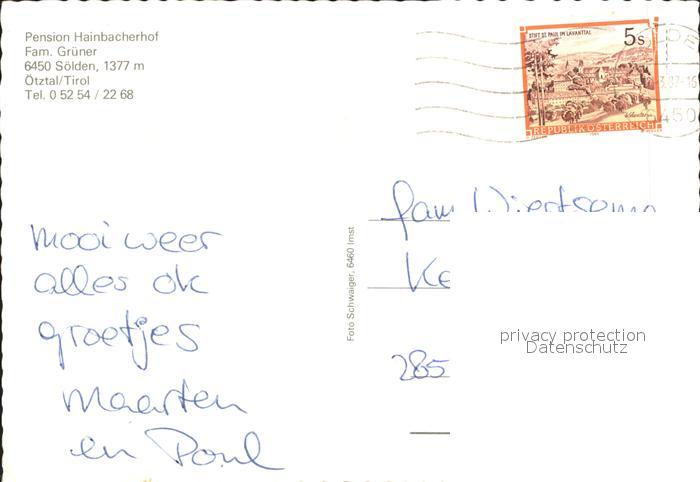 Pension Hainbacherhof
Fam. Grüner
6450 Sölden, 1377 m
Ötztal/Tirol
Tel. 0 52 54 / 22 68
STIFT ST. PAUL IM LAVANTTAL
5s
REPUBLIK ÖSTERREICH
6450
mooi weer
alles ok
groetjes
Maarten
en Paul
Foto Schwaiger, 6460 Imst
fam
Ke
285
privacy protection
Datenschutz